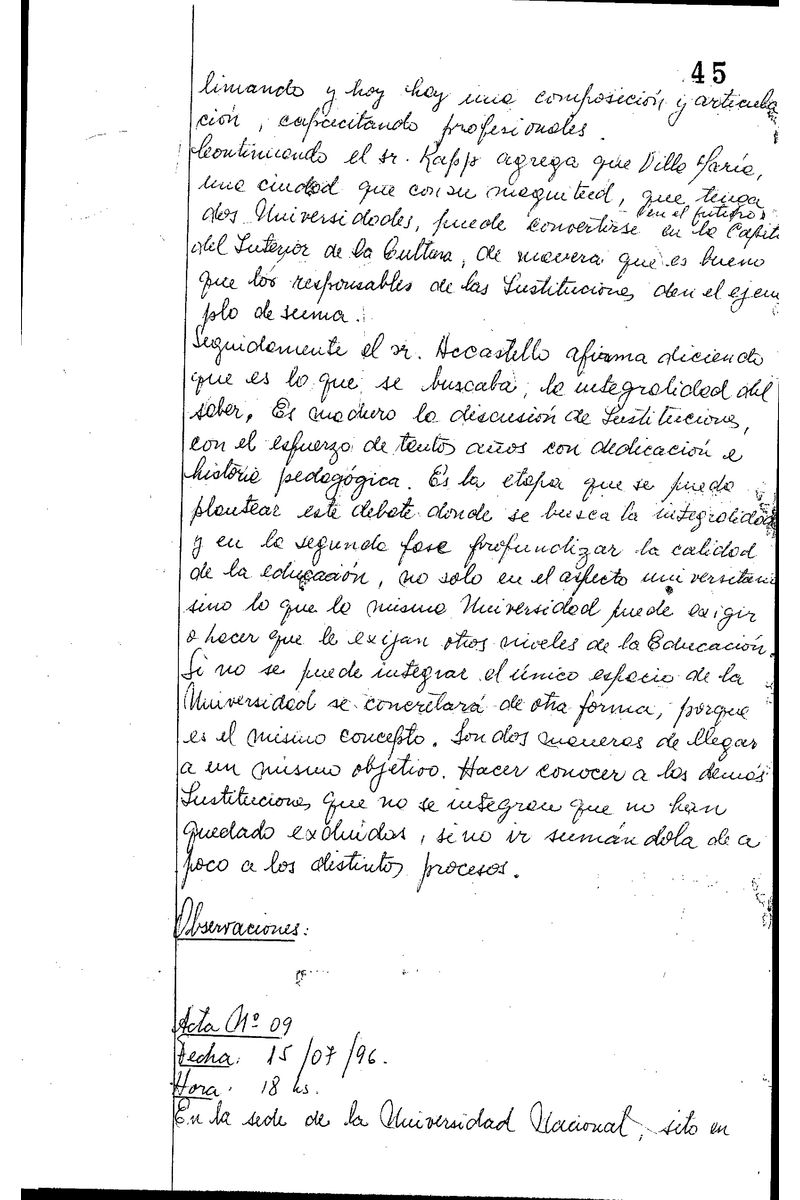 45
limando y hoy hay una composición y articula
ción, capacitando profesionales.
Continuando el sr. Kapp agrega que Villa María,
una ciudad que con su magnitud, que tenga
dos Universidades, puede convertirse "en el futuro" en la Capit
del Interior de la Cultura, de manera que es bueno
que los responsables de las Instituciones den el ejem
plo de suma.
Seguidamente el sr. Accastello afirma diciendo
que es lo que se buscaba, la integralidad del
saber. Es maduro la discusión de Instituciones,
con el esfuerzo de tantos años con dedicación e
historia pedagógica. Es la etapa que se puede
plantear este debate donde se busca la integralidad
y en la segunda fase profundizar la calidad
de la educación, no solo en el aspecto universitario
sino lo que la misma Universidad puede exigir
o hacer que le exijan otros niveles de la Educación.
Si no se puede integrar el único espacio de la
Universidad se concretará de otra forma, porque
es el mismo concepto. Son dos maneras de llegar
a un mismo objetivo. Hacer conocer a las demás
Instituciones que no se integran que no han
quedado excluídas, sino ir sumándola de a
poco a los distintos procesos.
Observaciones:
Acta Nº 09
Fecha: 15/07/96.
Hora: 18 hs.
En la sede de la Universidad Nacional, sito en